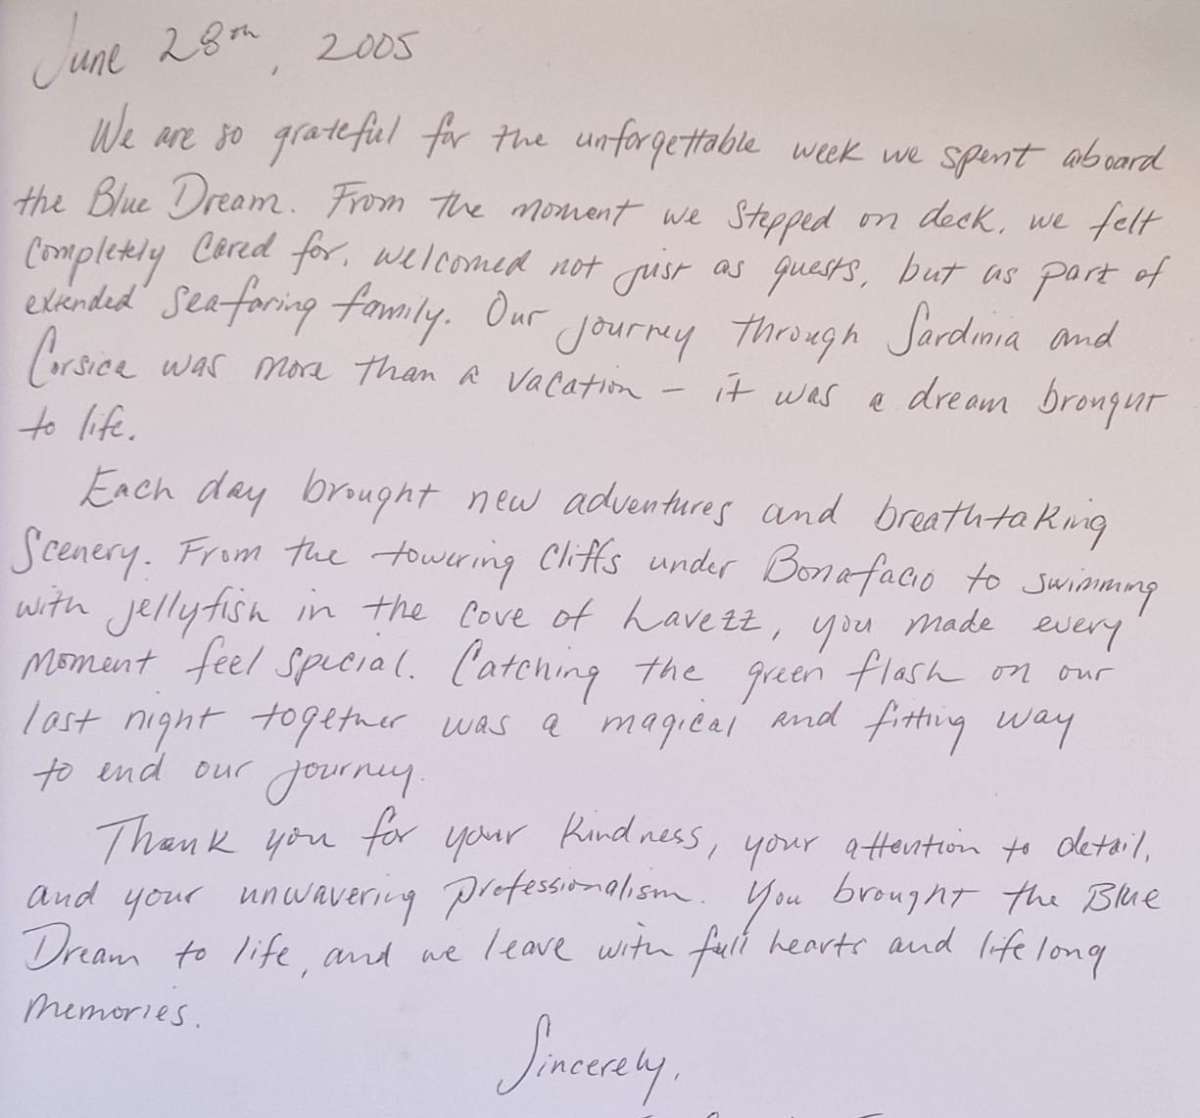 June 28th, 2005
We are so grateful for the unforgettable week we spent aboard
the Blue Dream. From the moment we stepped on deck, we felt
completely cared for, welcomed not just as guests, but as part of
extended seafaring family. Our journey through Sardinia and
Corsica was more than a vacation – it was a dream brought
to life.
Each day brought new adventures and breathtaking
scenery. From the towering cliffs under Bonafacio to swimming
with jellyfish in the cove of Lavezz, you made every
moment feel special. Catching the green flash on our
last night together was a magical and fitting way
to end our journey.
Thank you for your kindness, your attention to detail,
and your unwavering professionalism. You brought the Blue
Dream to life, and we leave with full hearts and lifelong
memories.
Sincerely,